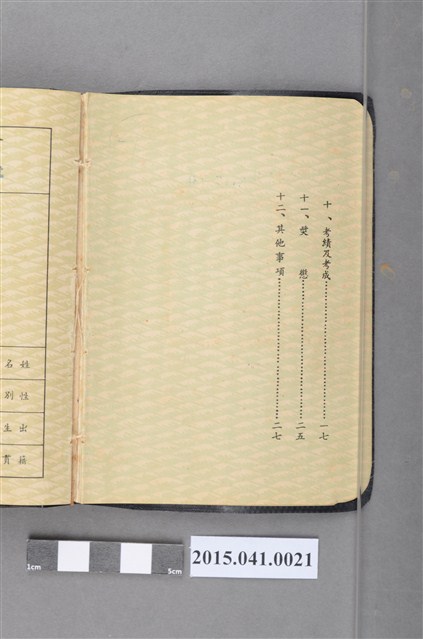 十、考績及考成……一七
十一、獎懲……二五
十二、其他事項……二七
姓名
性別
出生
籍貫
1cm
5cm
2015.041.0021